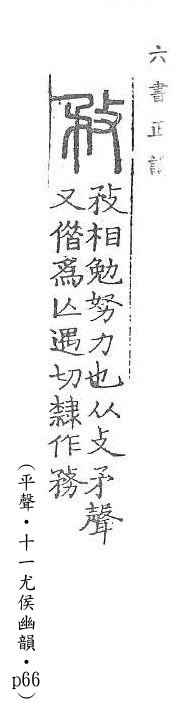 六書正
敄
敄相勉努力也从攴矛聲
又偕爲亾遇切隸作務
（平聲・十一尤侯幽韻・p66）